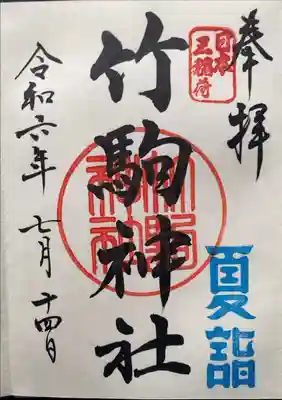 奉拝
日本
三稲荷
竹駒神社
夏詣
令和六年
七月十四日